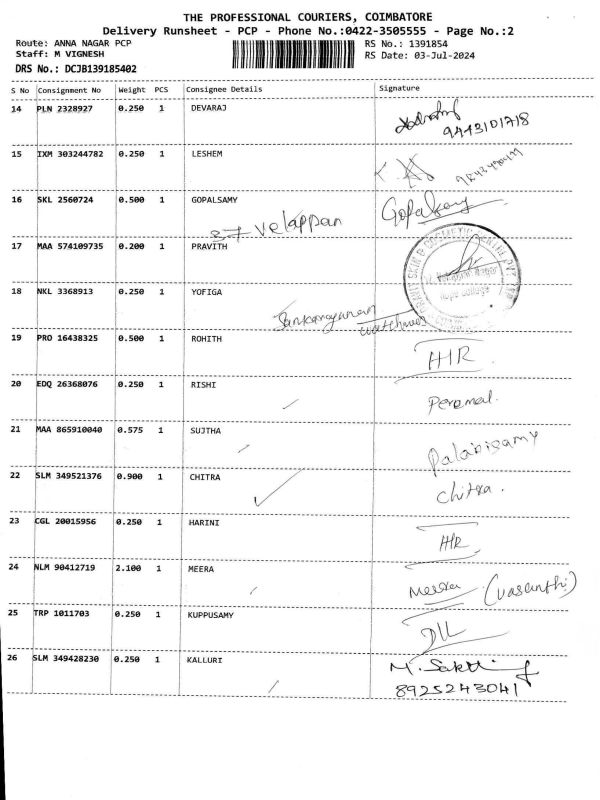 THE PROFESSIONAL COURIERS, COIMBATORE
Delivery Runsheet - PCP - Phone No.:0422-3505555 - Page No.:2
Route: ANNA NAGAR PCP RS No.: 1391854
Staff: M VIGNESH RS Date: 03-Jul-2024
DRS No.: DCJB139185402
S No Consignment No Weight PCS Consignee Details Signature
14 PLN 2328927 0.250 1 DEVARAJ
9443101718
15 IXM 303244782 0.250 1 LESHEM
16 SKL 2560724 0.500 1 GOPALSAMY Gopalsamy
37 Velappan
17 MAA 574109735 0.200 1 PRAVITH
18 NKL 3368913 0.250 1 YOFIGA
Sankarayanan
watchman
19 PRO 16438325 0.500 1 ROHITH HR
20 EDQ 26368076 0.250 1 RISHI Peromal.
21 MAA 865910040 0.575 1 SUJTHA Palanisamy
22 SLM 349521376 0.900 1 CHITRA Chitra.
23 CGL 20015956 0.250 1 HARINI HR
24 NLM 90412719 2.100 1 MEERA Meera (vasanthi)
25 TRP 1011703 0.250 1 KUPPUSAMY
26 SLM 349428230 0.250 1 KALLURI M. Sakthi
8925243041